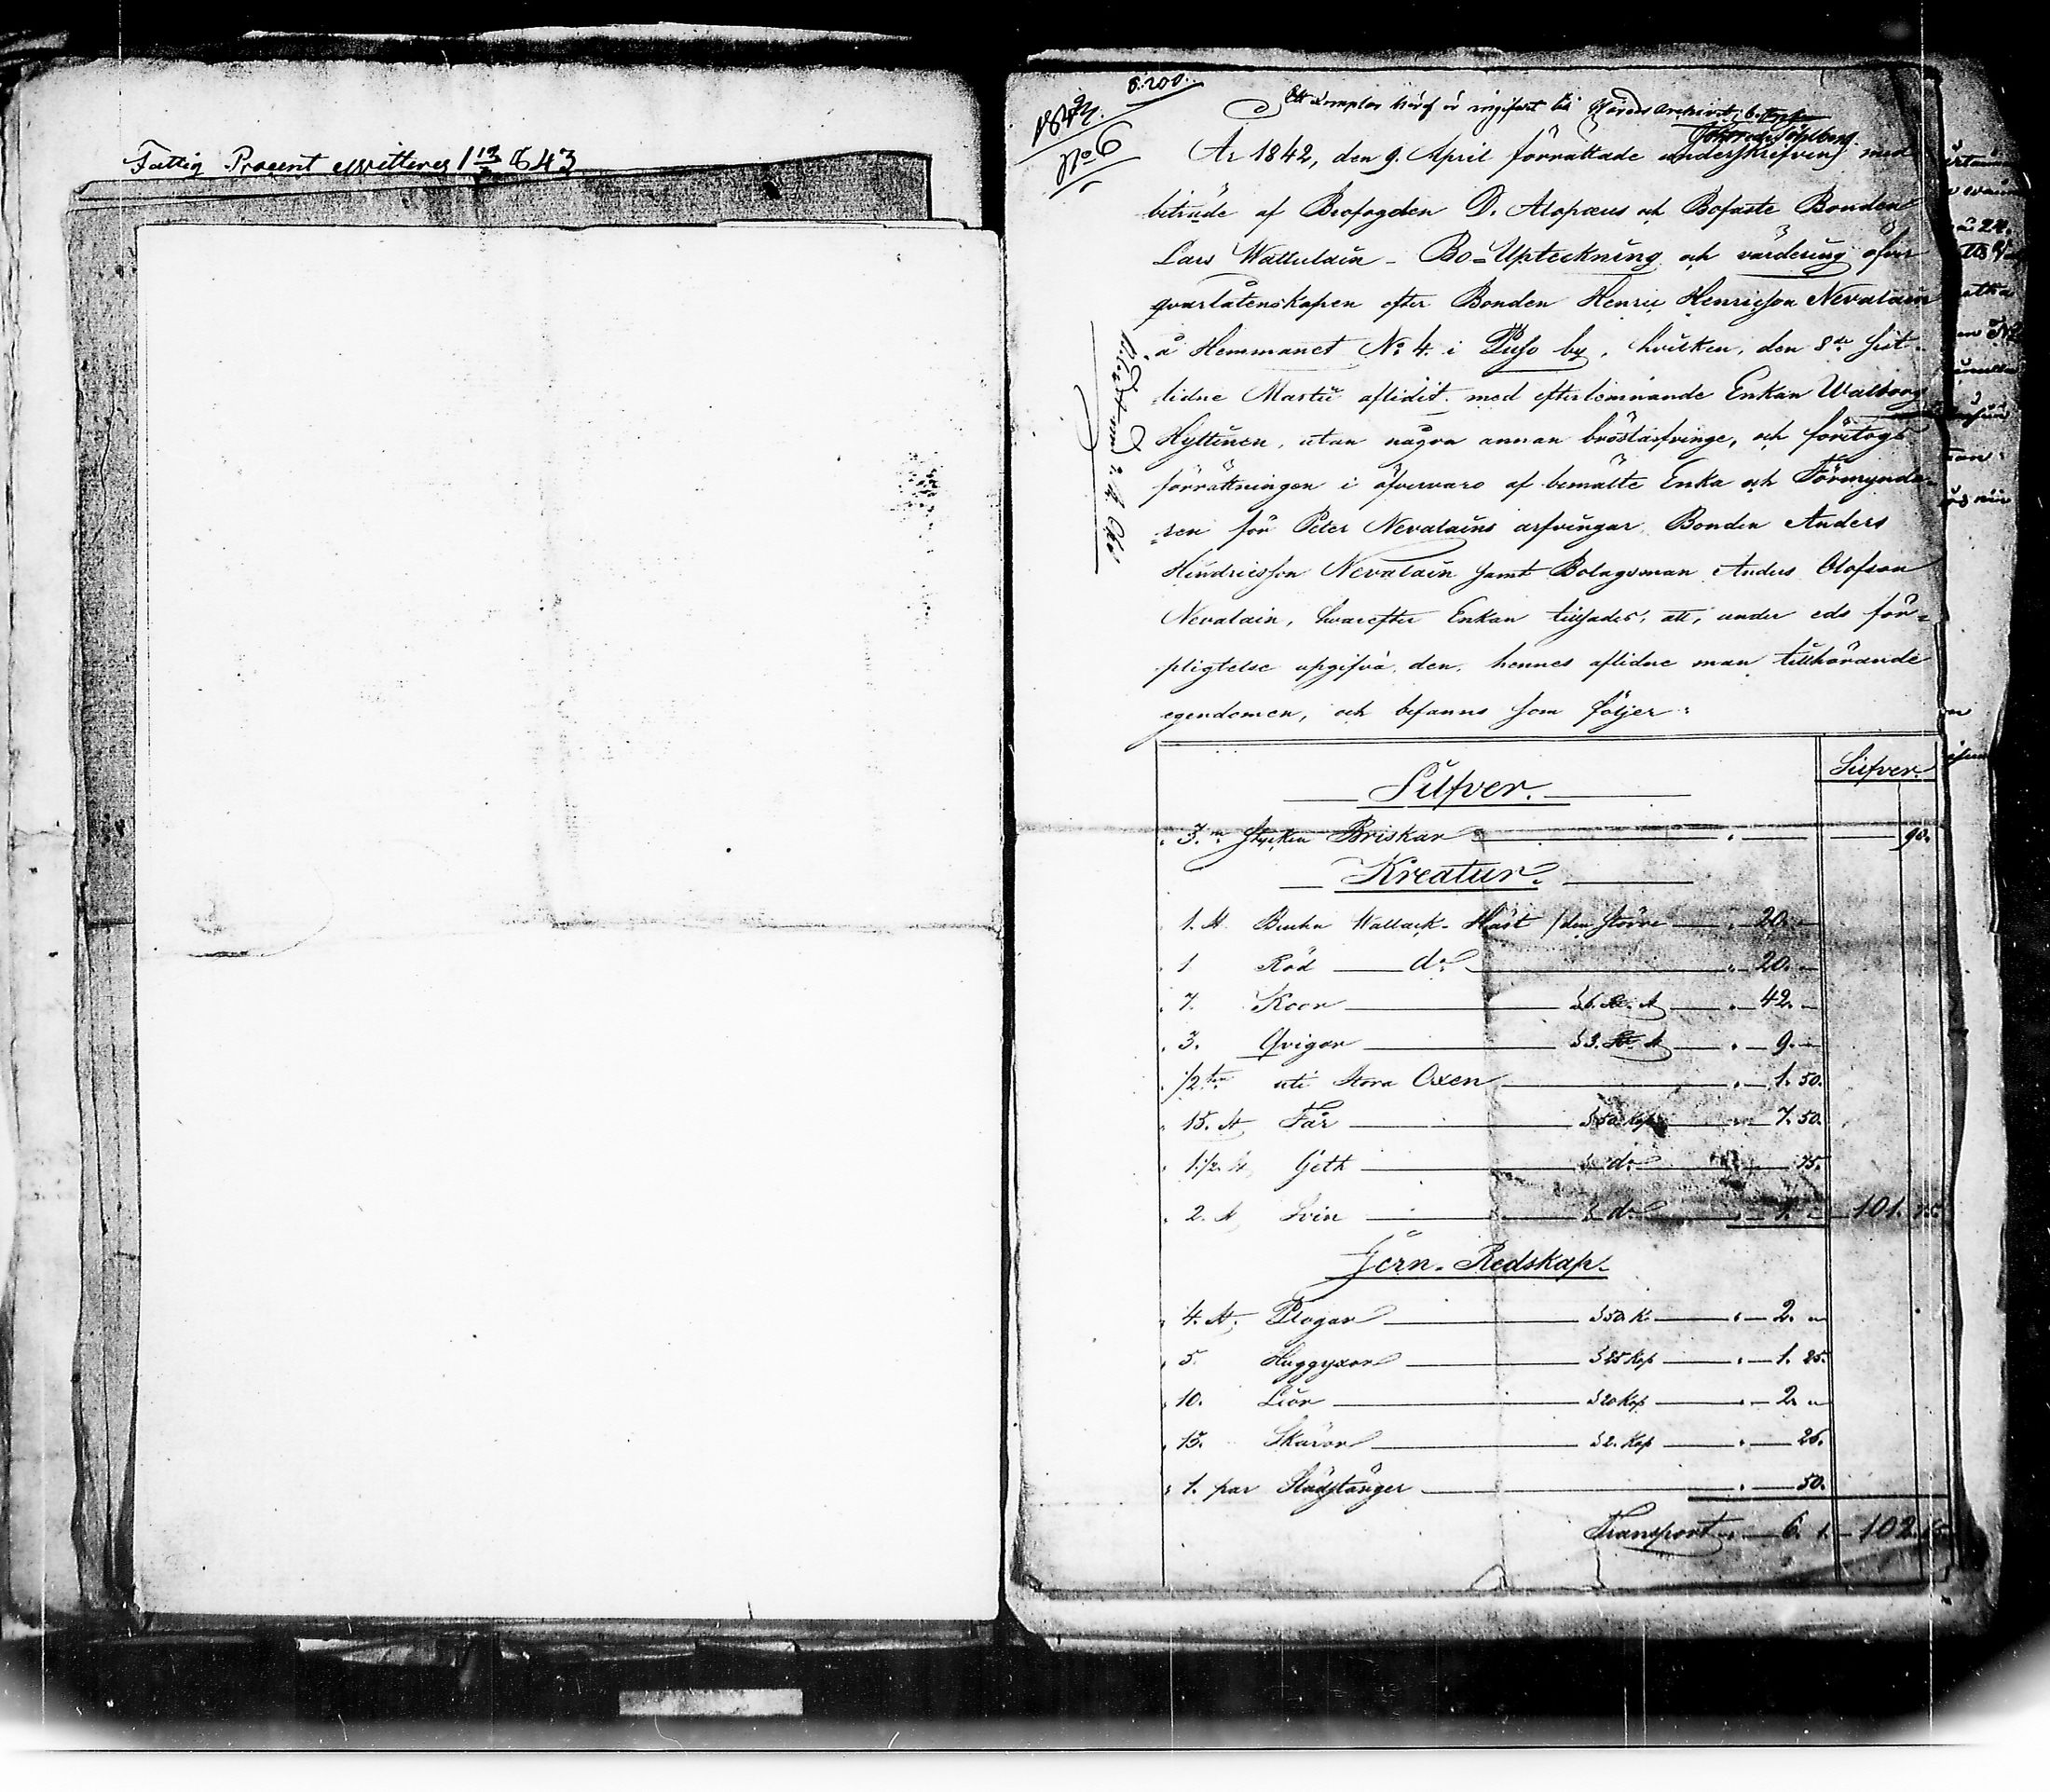 Fattig Procent qvitteras 1 13/ 643
S. 200.
1842.
No 6
Ett Exemplar häraf är ingifvet till Härads Archivet,
År 1842, den 9. April förrättade underskrifven med
biträde af Brofogden D. Alopæus och Bofaste Bonden
Lars Wattulain – Bo-Upteckning och värdering öfver
qvarlåtenskapen efter Bonden Henric Henricsson Nevalain
å Hemmanet No 4. i Puso by, hvilken, den 8de sist-
lidne Martii aflidit med efterlemnande Enkan Walborg
Hyttinen, utan några annan bröstarfvinge, och företogs
förrättningen i öfvervaro af bemälte Enka och Förmynda-
ren för Peter Nevalains arfvingar Bonden Anders
Hindricsson Nevalain samt Bolagsman Anders Olofsson
Nevalain, hvarefter Enkan tillsades, att, under eds för-
pligtelse upgifva den, hennes aflidne man tillhörande
egendomen, och befanns som följer:
Silfver.
Silfver.
3. stycken Briskar 90.
Kreatur.
1. st. Wallack-Häst / den större 20. –
1 Röd do 20. –
7. Koor à 6. R. st 42. –
3. Qvigor à 3. R. st 9. –
1/2 uti Stora Oxen 1. 50.
15. st Får à 50 Kop 7. 50.
1 1/2. st Geth à do 75.
2. st Svin à do 1. – 101. 75.
Jern-Redskap.
4. st. Plogar à 50. K. 2. –
5. Huggyxor à 25 Kop 1. 25.
10. Liar à 20 Kop 2. –
13. Skäror à 2. Kop 26.
1. par Städstänger 50.
Transport 6. 1. 102.